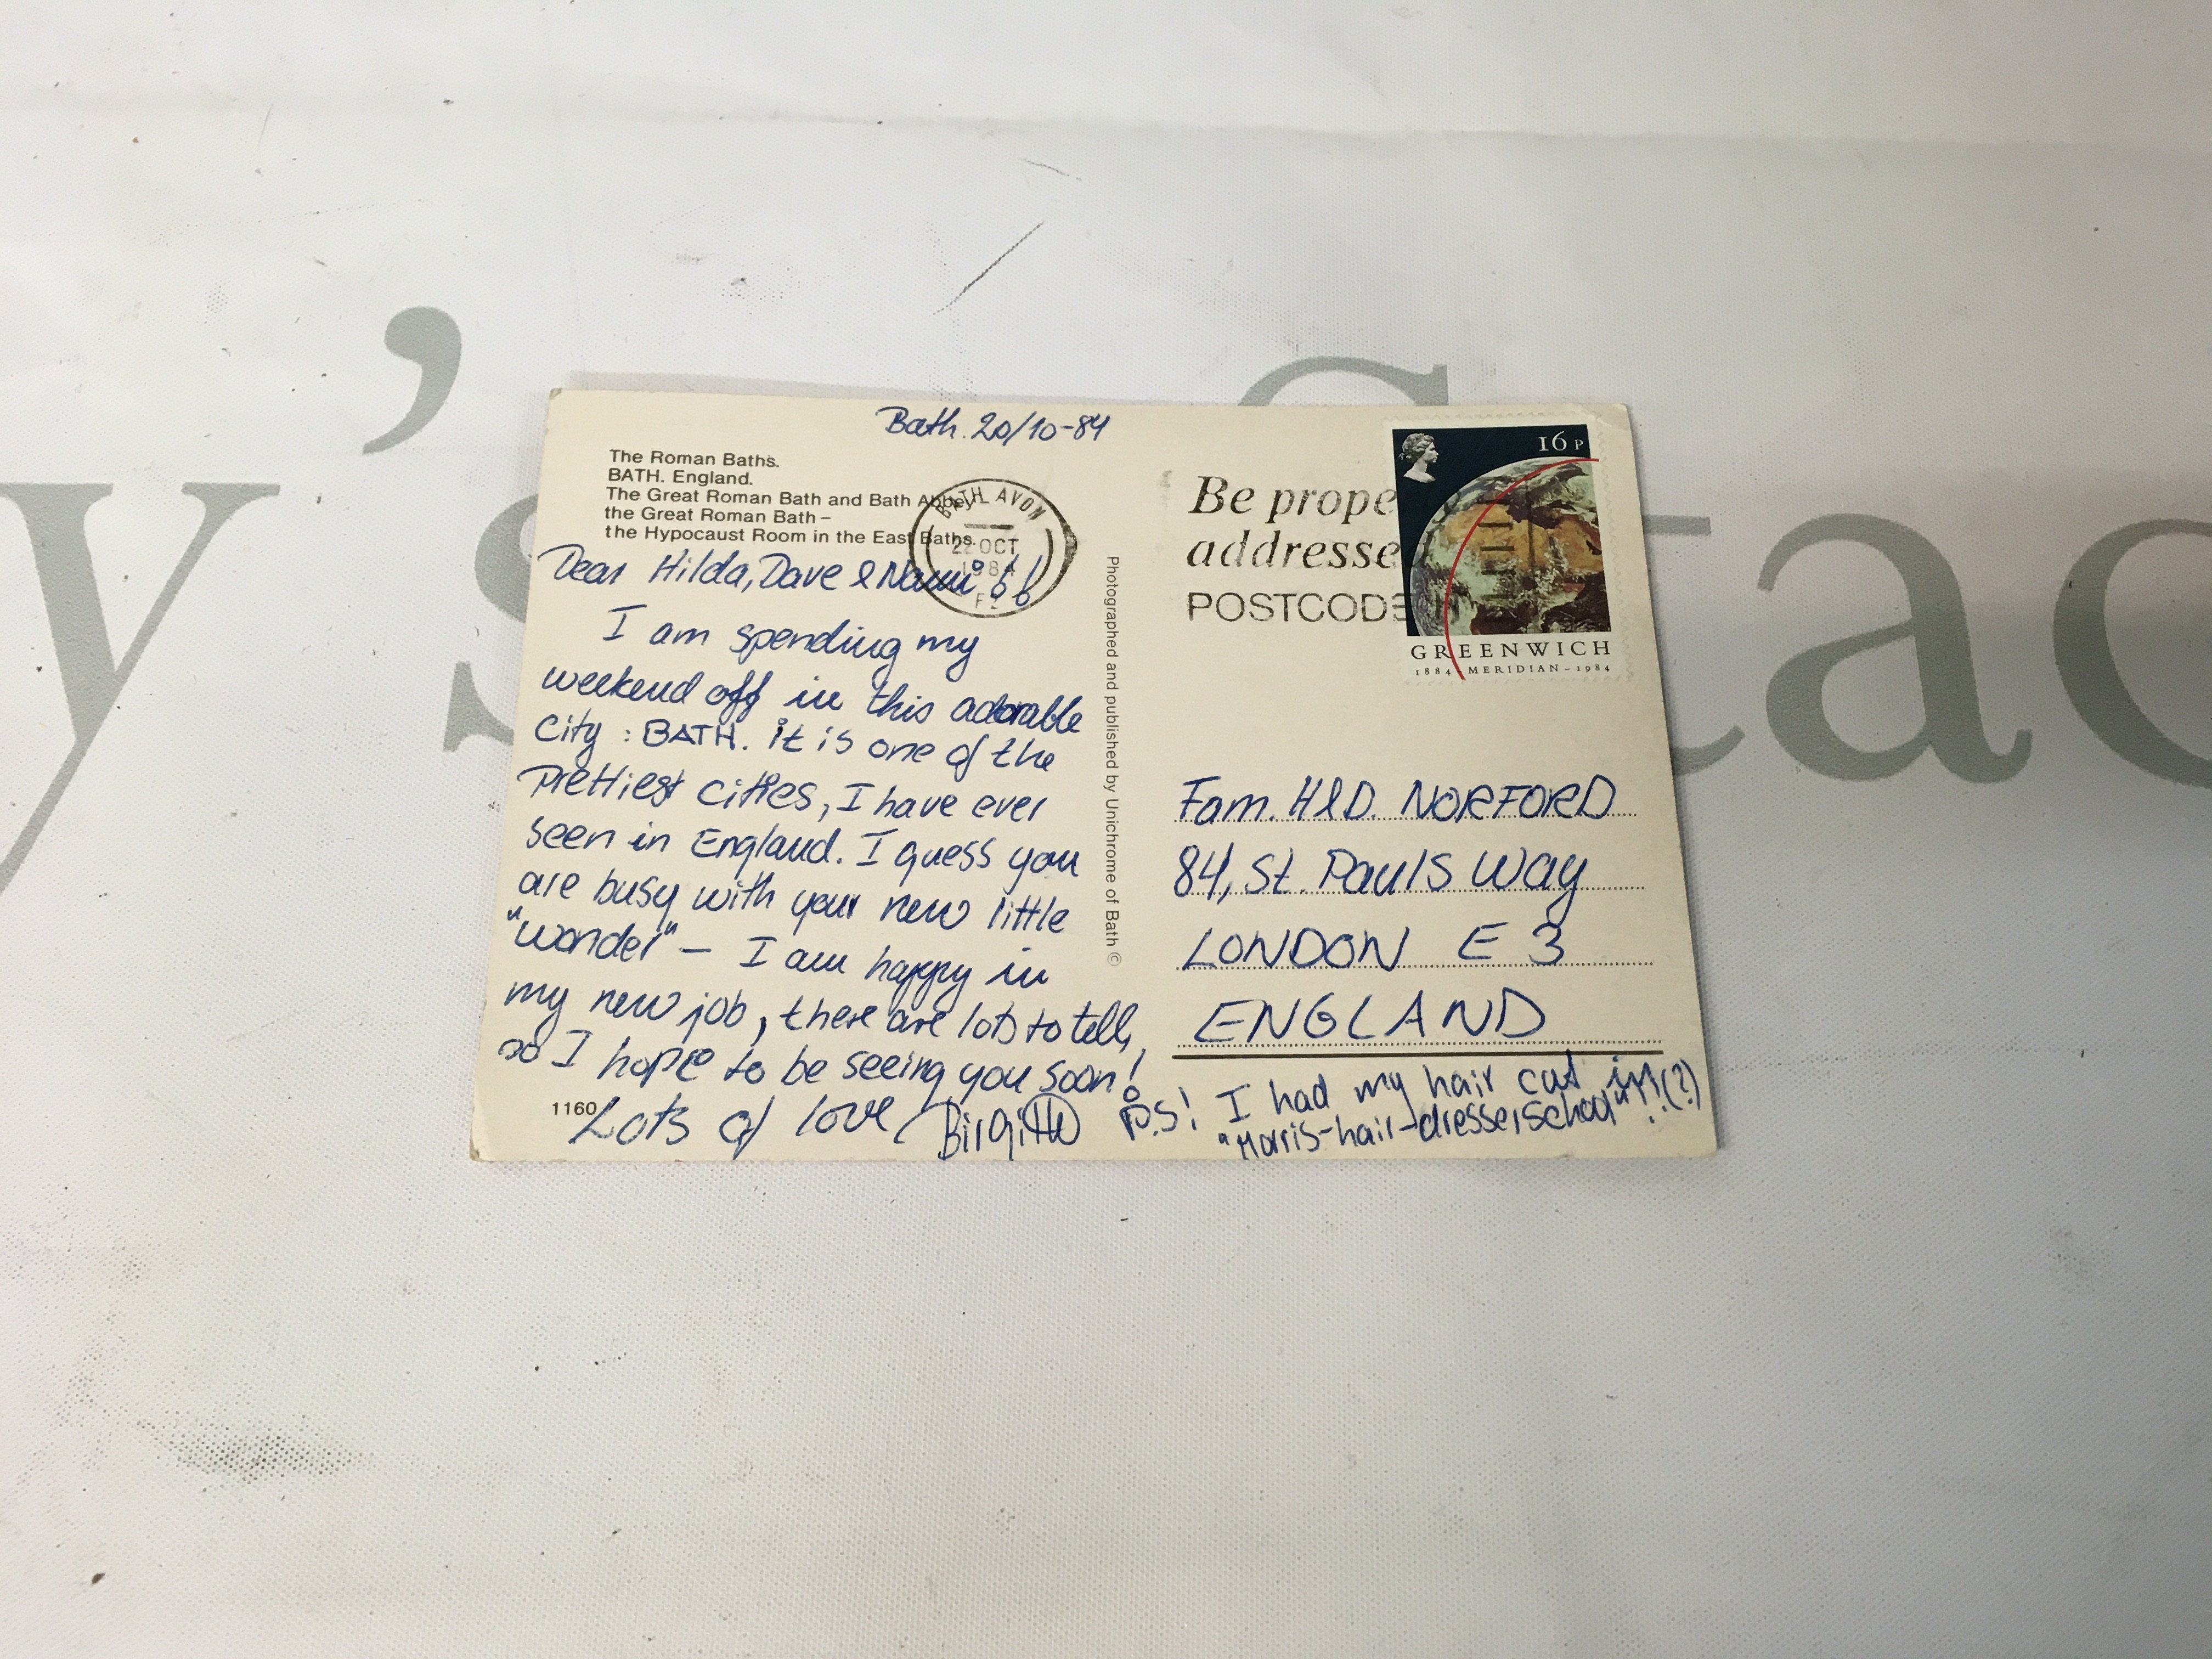 y's Stac
Bath. 20/10-84
The Roman Baths.
BATH. England.
The Great Roman Bath and Bath Abbey
the Great Roman Bath –
the Hypocaust Room in the East Baths.
BATH AVON
22 OCT
1984
Dear Hilda, Dave &
I am spending my
weekend off in this adorable
City : BATH. it is one of the
Prettiest cities, I have ever
seen in England. I guess you
are busy with your new little
"wonder" – I am happy in
my new job, there are lots to tell,
so I hope to be seeing you soon!
1160
Lots of love Birgitth
Photographed and published by Unichrome of Bath ©
Be prope
addressed
POSTCODE
16P
GREENWICH
1884 · MERIDIAN – 1984
Fam. H&D. NORFORD
84, St. Pauls Way
LONDON E 3
ENGLAND
P.S! I had my hair cut in
"Morris-hair-dresserschool"!!!(?)